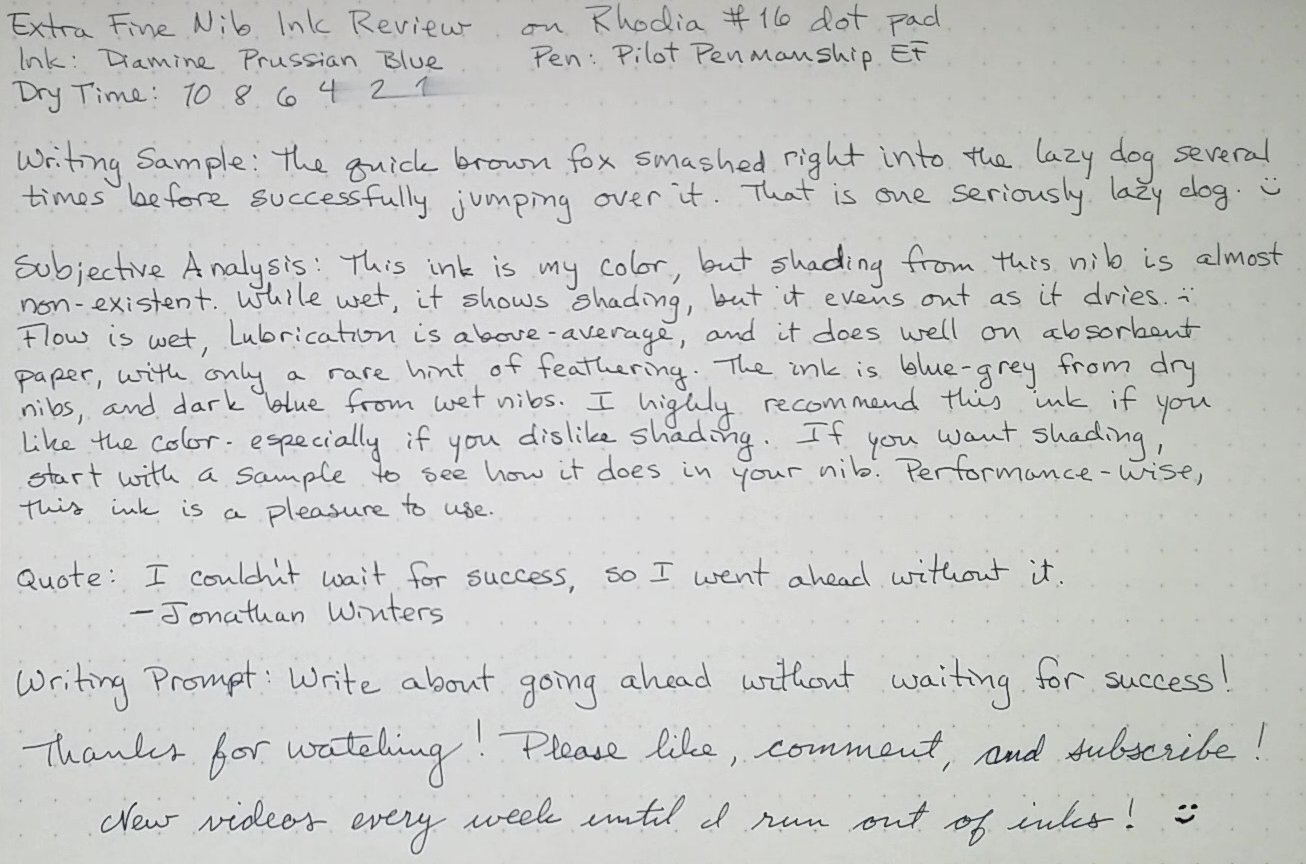 Extra Fine Nib Ink Review on Rhodia #16 dot pad
Ink: Diamine Prussian Blue Pen: Pilot Penmanship EF
Dry Time: 10 8 6 4 2 1
Writing Sample: The quick brown fox smashed right into the lazy dog several
times before successfully jumping over it. That is one seriously lazy dog. :)
Subjective Analysis: This ink is my color, but shading from this nib is almost
non-existent. While wet, it shows shading, but it evens out as it dries. :(
Flow is wet, Lubrication is above-average, and it does well on absorbent
paper, with only a rare hint of feathering. The ink is blue-grey from dry
nibs, and dark blue from wet nibs. I highly recommend this ink if you
like the color - especially if you dislike shading. If you want shading,
start with a sample to see how it does in your nib. Performance-wise,
this ink is a pleasure to use.
Quote: I couldn't wait for success, so I went ahead without it.
- Jonathan Winters
Writing Prompt: Write about going ahead without waiting for success!
Thanks for watching! Please like, comment, and subscribe!
New videos every week until I run out of inks! :)